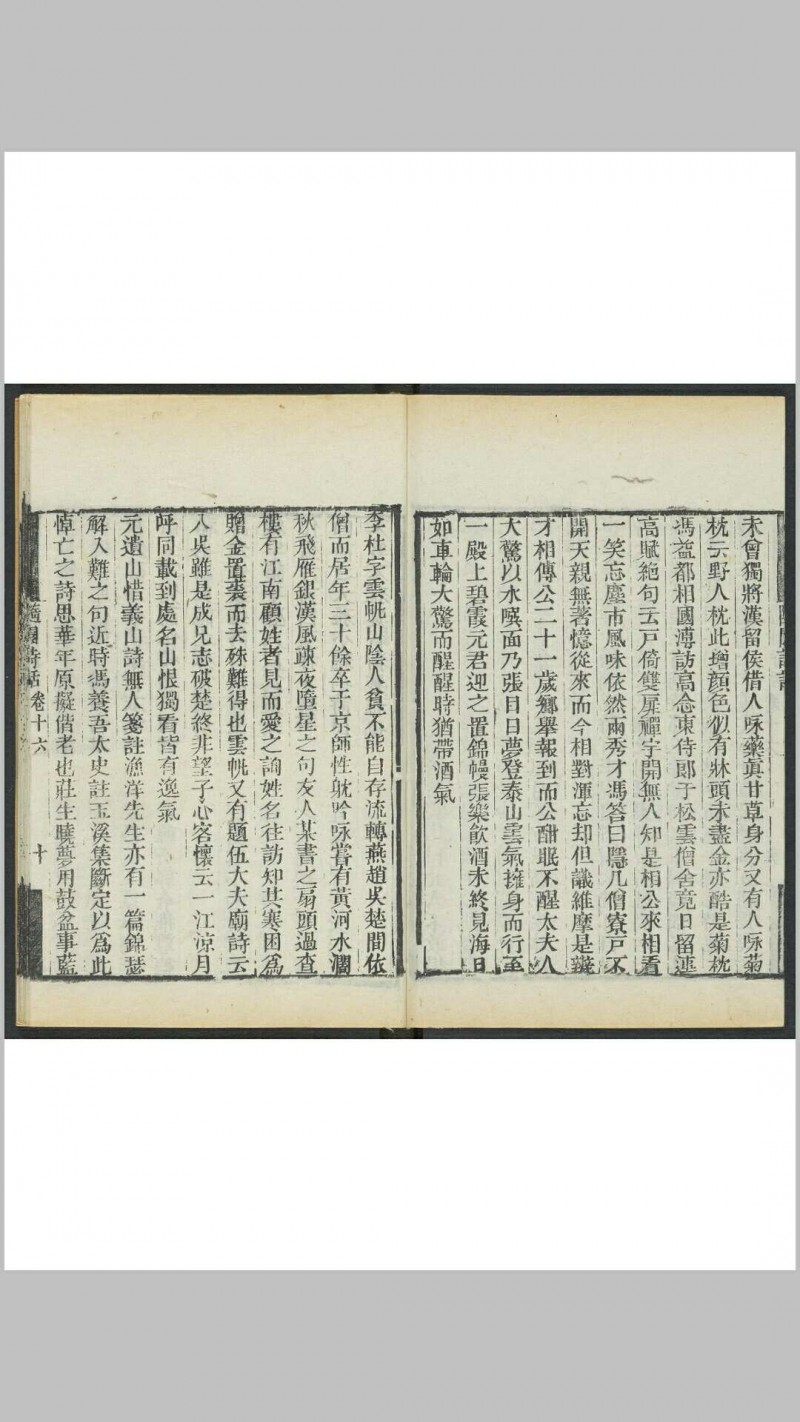 未曾獨將漢留侯借人咏藥眞甘草身分又有人咏菊
枕云野人枕此增顏色似有牀頭未盡金亦酷是菊枕
馮益都相國溥訪高念東侍郞于松雲僧舍竟日留連
高賦絕句云戸倚雙扉禪字開無人知是相公來相看
一笑忘塵市風味依然兩秀才馮答曰隱几僧寮戸不
開天親無著憶從來而今相對渾忘却但識維摩是辯
才相傳公二十一歲鄉舉報到而公酣眠不醒太夫人
大驚以水噀面乃張目曰夢登泰山雲氣擁身而行至
一殿上碧霞元君迎之置錦幔張樂飮酒未終見海日
如車輪大驚而醒醒時猶帶酒氣
李杜字雲帆山陰人貧不能自存流轉燕趙吳楚間依
僧而居年三十餘卒于京師性躭吟咏嘗有黃河水濶
秋飛雁銀漢風疎夜墮星之句友人某書之扇頭過查
樓有江南顧姓者見而愛之詢姓名往訪知其寒困爲
贈金置裘而去殊難得也雲帆又有題伍大夫廟詩云
入吳雖是成兄志破楚終非望子心客懷云一江涼月
呼同載到處名山恨獨看皆有逸氣
元遺山惜義山詩無人箋註漁洋先生亦有一篇錦瑟
解人難之句近時馮養吾太史註玉溪集斷定以爲此
悼亡之詩思華年原擬偕老也莊生曉夢用鼓盆事藍
隨園詩話 卷十六 十